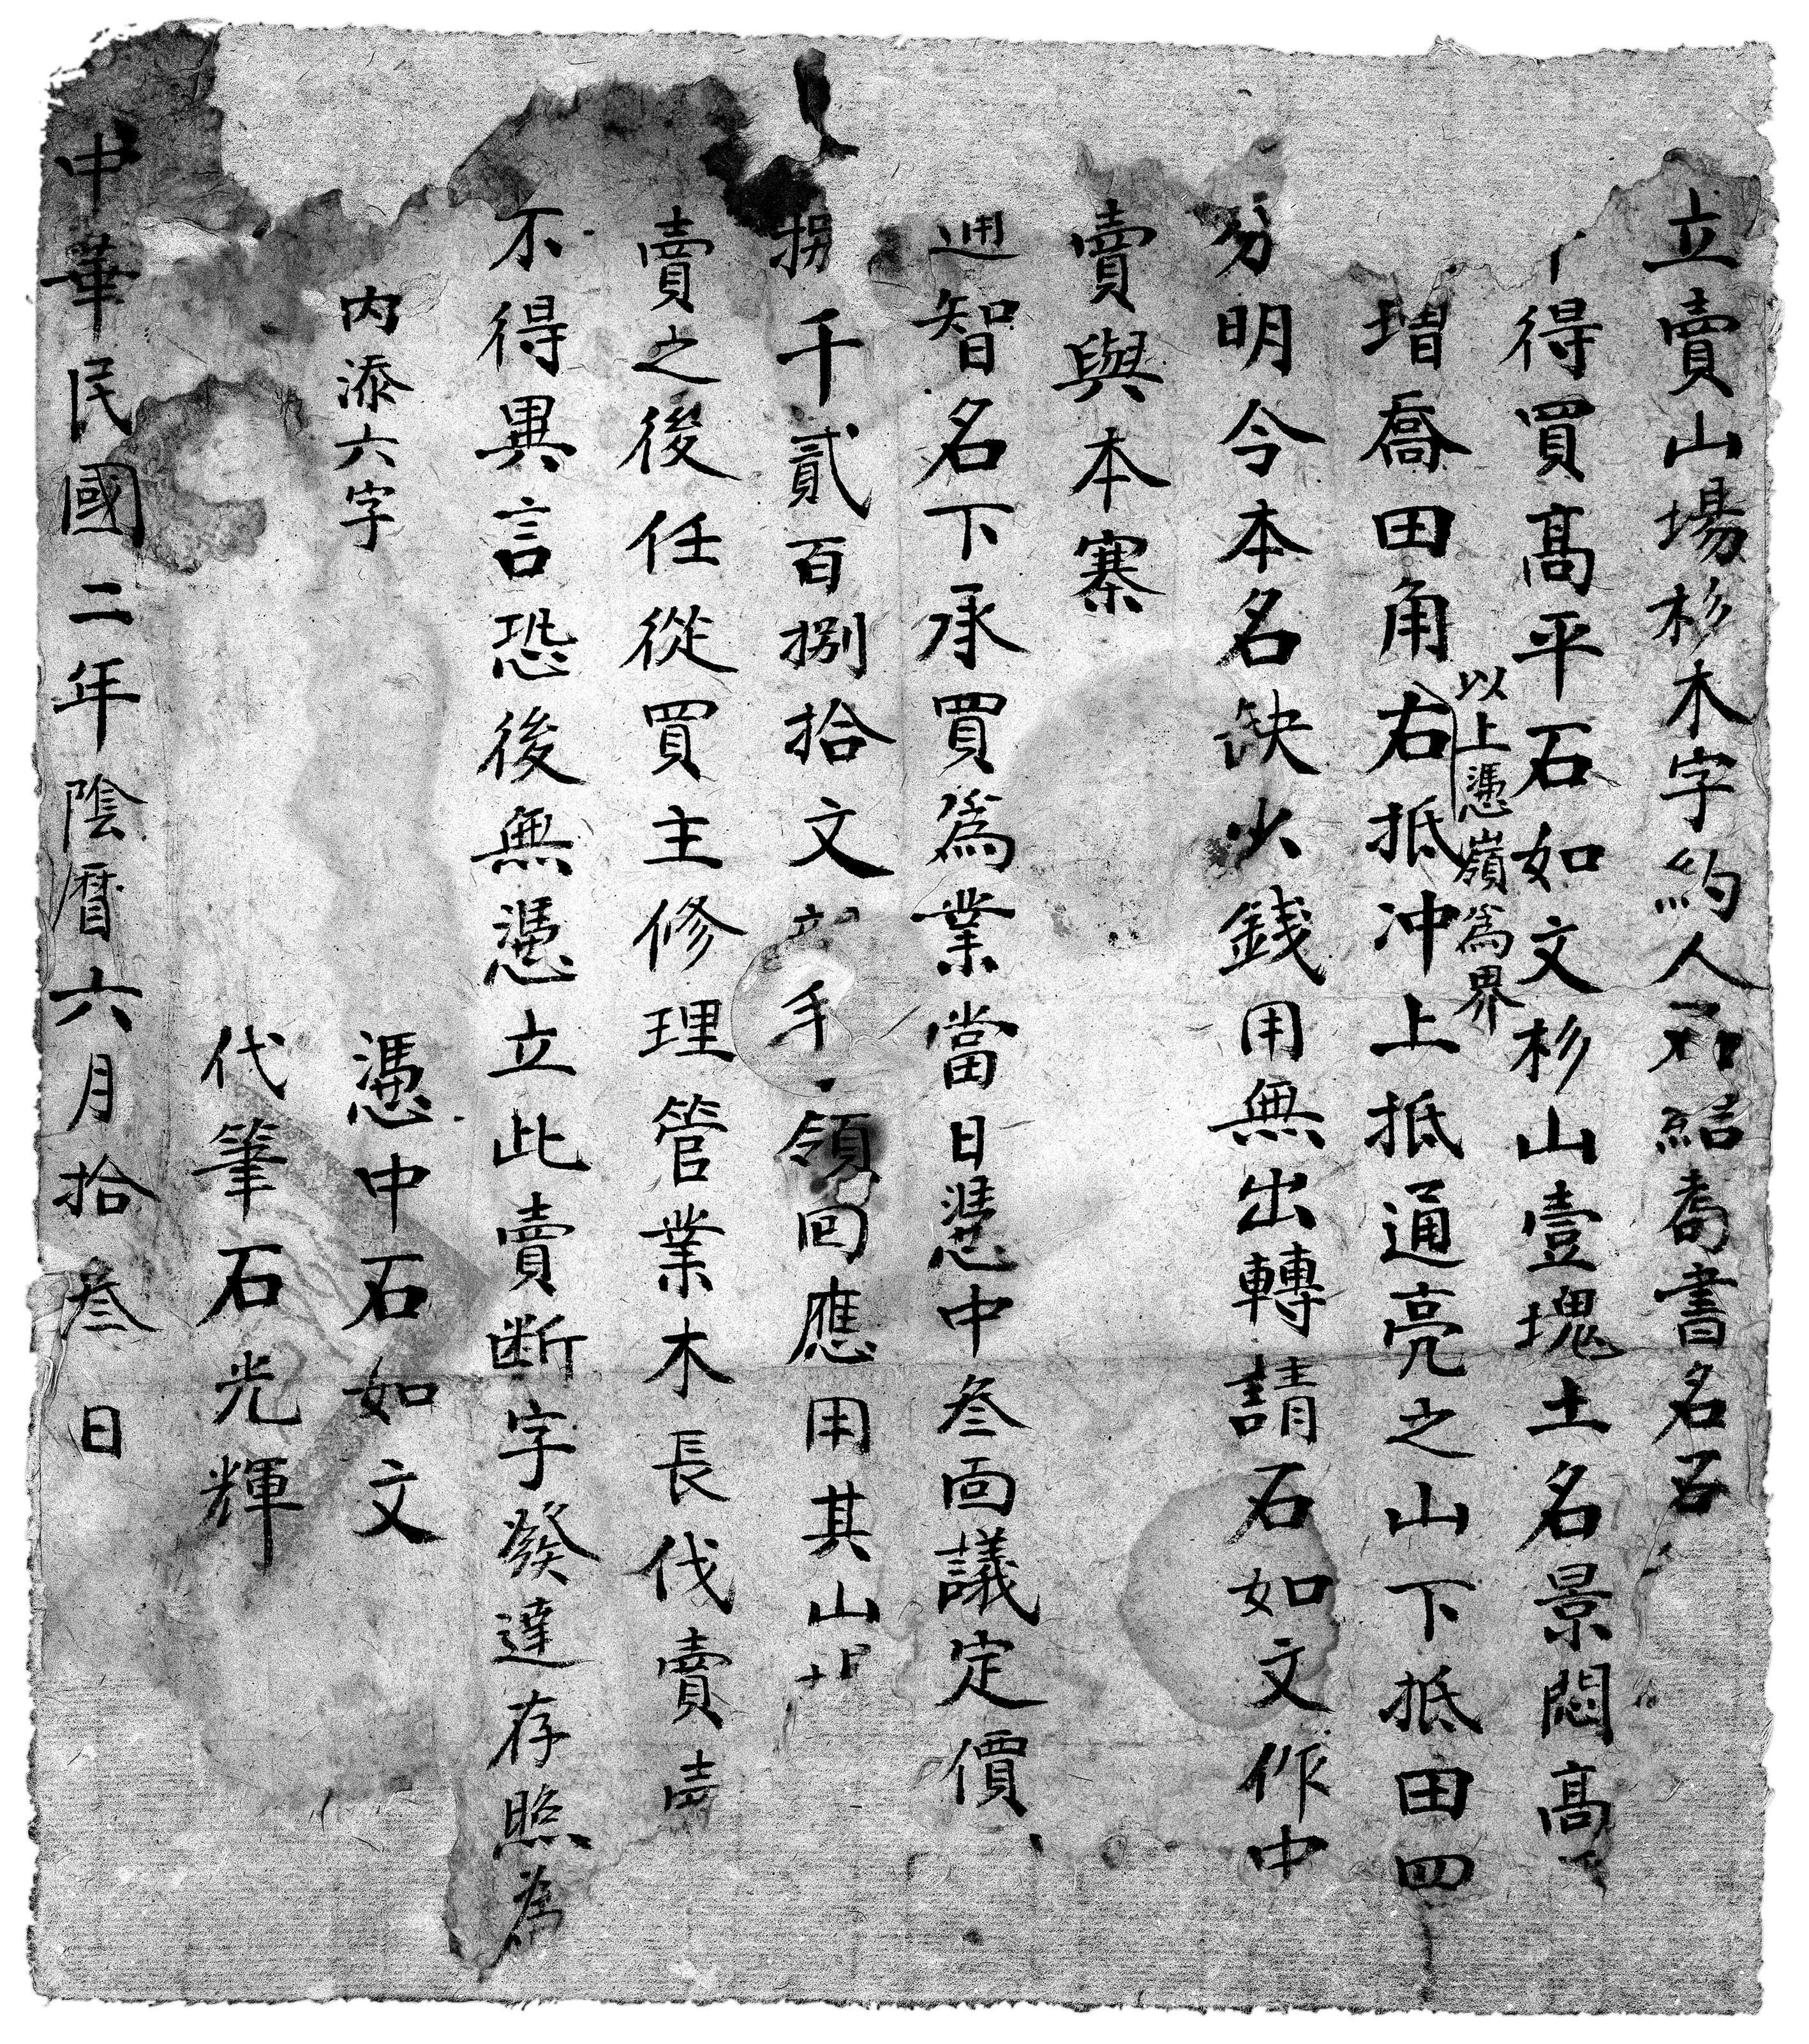 立賣山場杉木字約人石結喬書名
得買髙平石如文杉山壹塊土名景悶髙
以上憑嶺為界
增喬田角右抵冲上抵通亮之山下抵田四
分明今本名缺少錢用無出轉請石如文作中
賣與本寨
通智名下承買為業當日憑中叁面議定價
拐千貳百捌拾文親手領回應用其山
賣之後任從買主修理管業木長伐賣
不得異言恐後無憑立此賣断字發達存照為
內添六字
憑中石如文
代筆石光輝
中華民國二年陰曆六月拾叁日